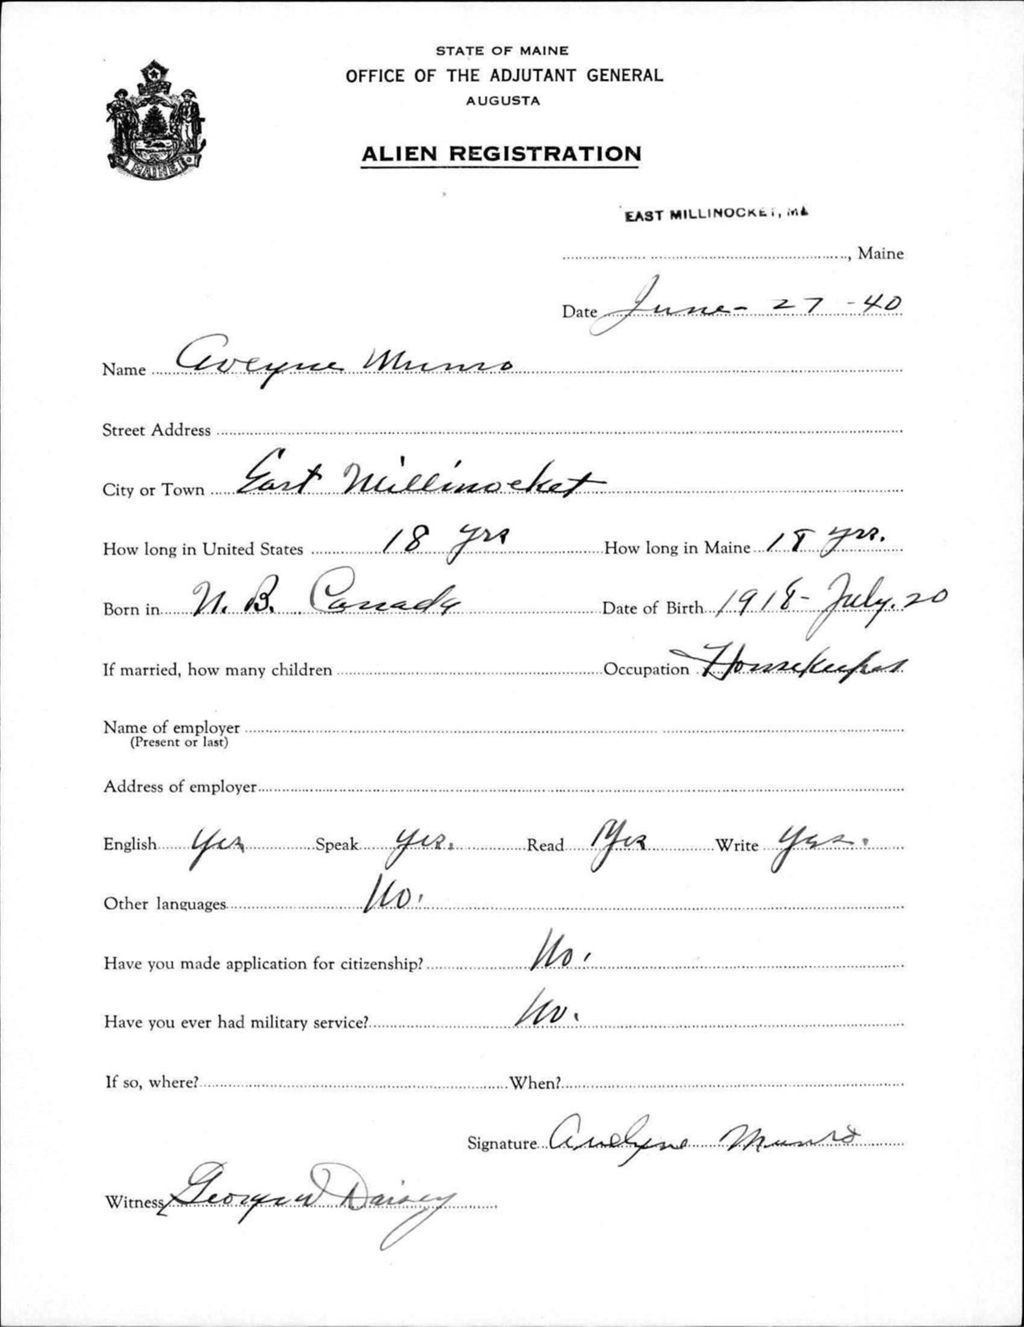 STATE OF MAINE
OFFICE OF THE ADJUTANT GENERAL
AUGUSTA
ALIEN REGISTRATION
MAINE
EAST MILLINOCKET, ME
, Maine
Date June - 27 - 40
Name Aveyne Munro
Street Address
City or Town East Millinocket
How long in United States 18 yrs How long in Maine 18 yrs.
Born in N. B. Canada Date of Birth 1918 - July. 20
If married, how many children Occupation Housekeeper
Name of employer
(Present or last)
Address of employer
English Yes Speak Yes. Read Yes Write Yes.
Other languages No.
Have you made application for citizenship? No.
Have you ever had military service? No.
If so, where? When?
Signature Munro
Witness George W Daisey